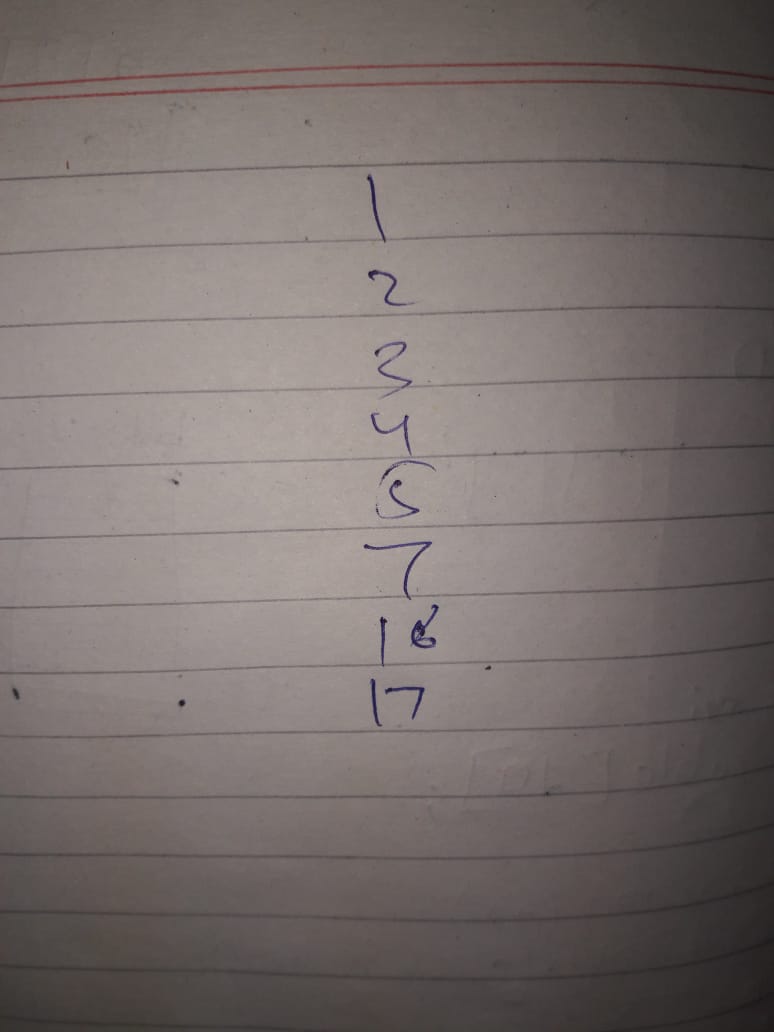 1
2
3
4
5
7
16
17